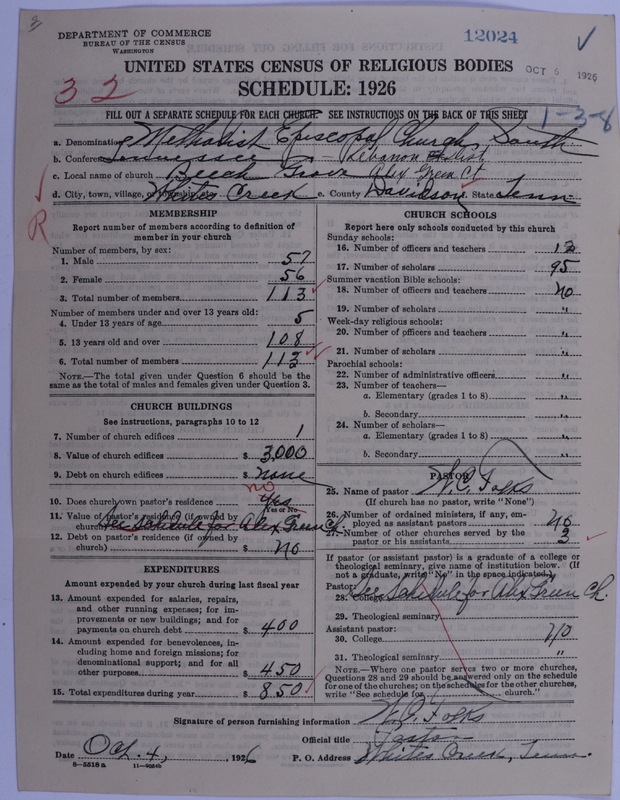 DEPARTMENT OF COMMERCE
BUREAU OF THE CENSUS
WASHINGTON
12024
UNITED STATES CENSUS OF RELIGIOUS BODIES
OCT 5 1926
SCHEDULE: 1926
32
FILL OUT A SEPARATE SCHEDULE FOR EACH CHURCH. SEE INSTRUCTIONS ON THE BACK OF THIS SHEET
1-3-8
a. Denomination Methodist Episcopal Church, South
b. Conference Tennessee - Lebanon Dist
c. Local name of church Beech Grove Alex Green Ct
d. City, town, village, Whites Creek e. County Davidson f. State Tenn
R
MEMBERSHIP
Report number of members according to definition of member in your church
Number of members, by sex:
1. Male 57
2. Female 56
3. Total number of members 113
Number of members under and over 13 years old:
4. Under 13 years of age 5
5. 13 years old and over 108
6. Total number of members 113
NOTE.—The total given under Question 6 should be the same as the total of males and females given under Question 3.
CHURCH BUILDINGS
See instructions, paragraphs 10 to 12
7. Number of church edifices 1
8. Value of church edifices $ 3,000
9. Debt on church edifices $ none
no
10. Does church own pastor's residence Yes
Yes or No
11. Value of pastor's residence (if owned by church) See Schedule for Alex Green Ch.
12. Debt on pastor's residence (if owned by church) $ no
EXPENDITURES
Amount expended by your church during last fiscal year
13. Amount expended for salaries, repairs, and other running expenses; for improvements or new buildings; and for payments on church debt $ 400
14. Amount expended for benevolences, including home and foreign missions; for denominational support; and for all other purposes $ 450
15. Total expenditures during year $ 850
CHURCH SCHOOLS
Report here only schools conducted by this church
Sunday schools:
16. Number of officers and teachers
17. Number of scholars 95
Summer vacation Bible schools:
18. Number of officers and teachers no
19. Number of scholars "
Week-day religious schools:
20. Number of officers and teachers "
21. Number of scholars "
Parochial schools:
22. Number of administrative officers "
23. Number of teachers—
a. Elementary (grades 1 to 8) "
b. Secondary "
24. Number of scholars—
a. Elementary (grades 1 to 8) "
b. Secondary "
PASTOR
25. Name of pastor Folks
(If church has no pastor, write "None")
26. Number of ordained ministers, if any, employed as assistant pastors no
27. Number of other churches served by the pastor or his assistants 3
If pastor (or assistant pastor) is a graduate of a college or theological seminary, give name of institution below. (If not a graduate, write "No" in the space indicated.)
Pastor:
28. College See Schedule for Alex Green Ch.
29. Theological seminary
Assistant pastor:
30. College no
31. Theological seminary "
NOTE.—Where one pastor serves two or more churches, Questions 28 and 29 should be answered only on the schedule for one of the churches; on the schedules for the other churches, write "See schedule for church."
Signature of person furnishing information Folks
Official title Pastor
Date Oct. 4, 1926 P. O. Address Whites Creek, Tenn.
8—5518 a